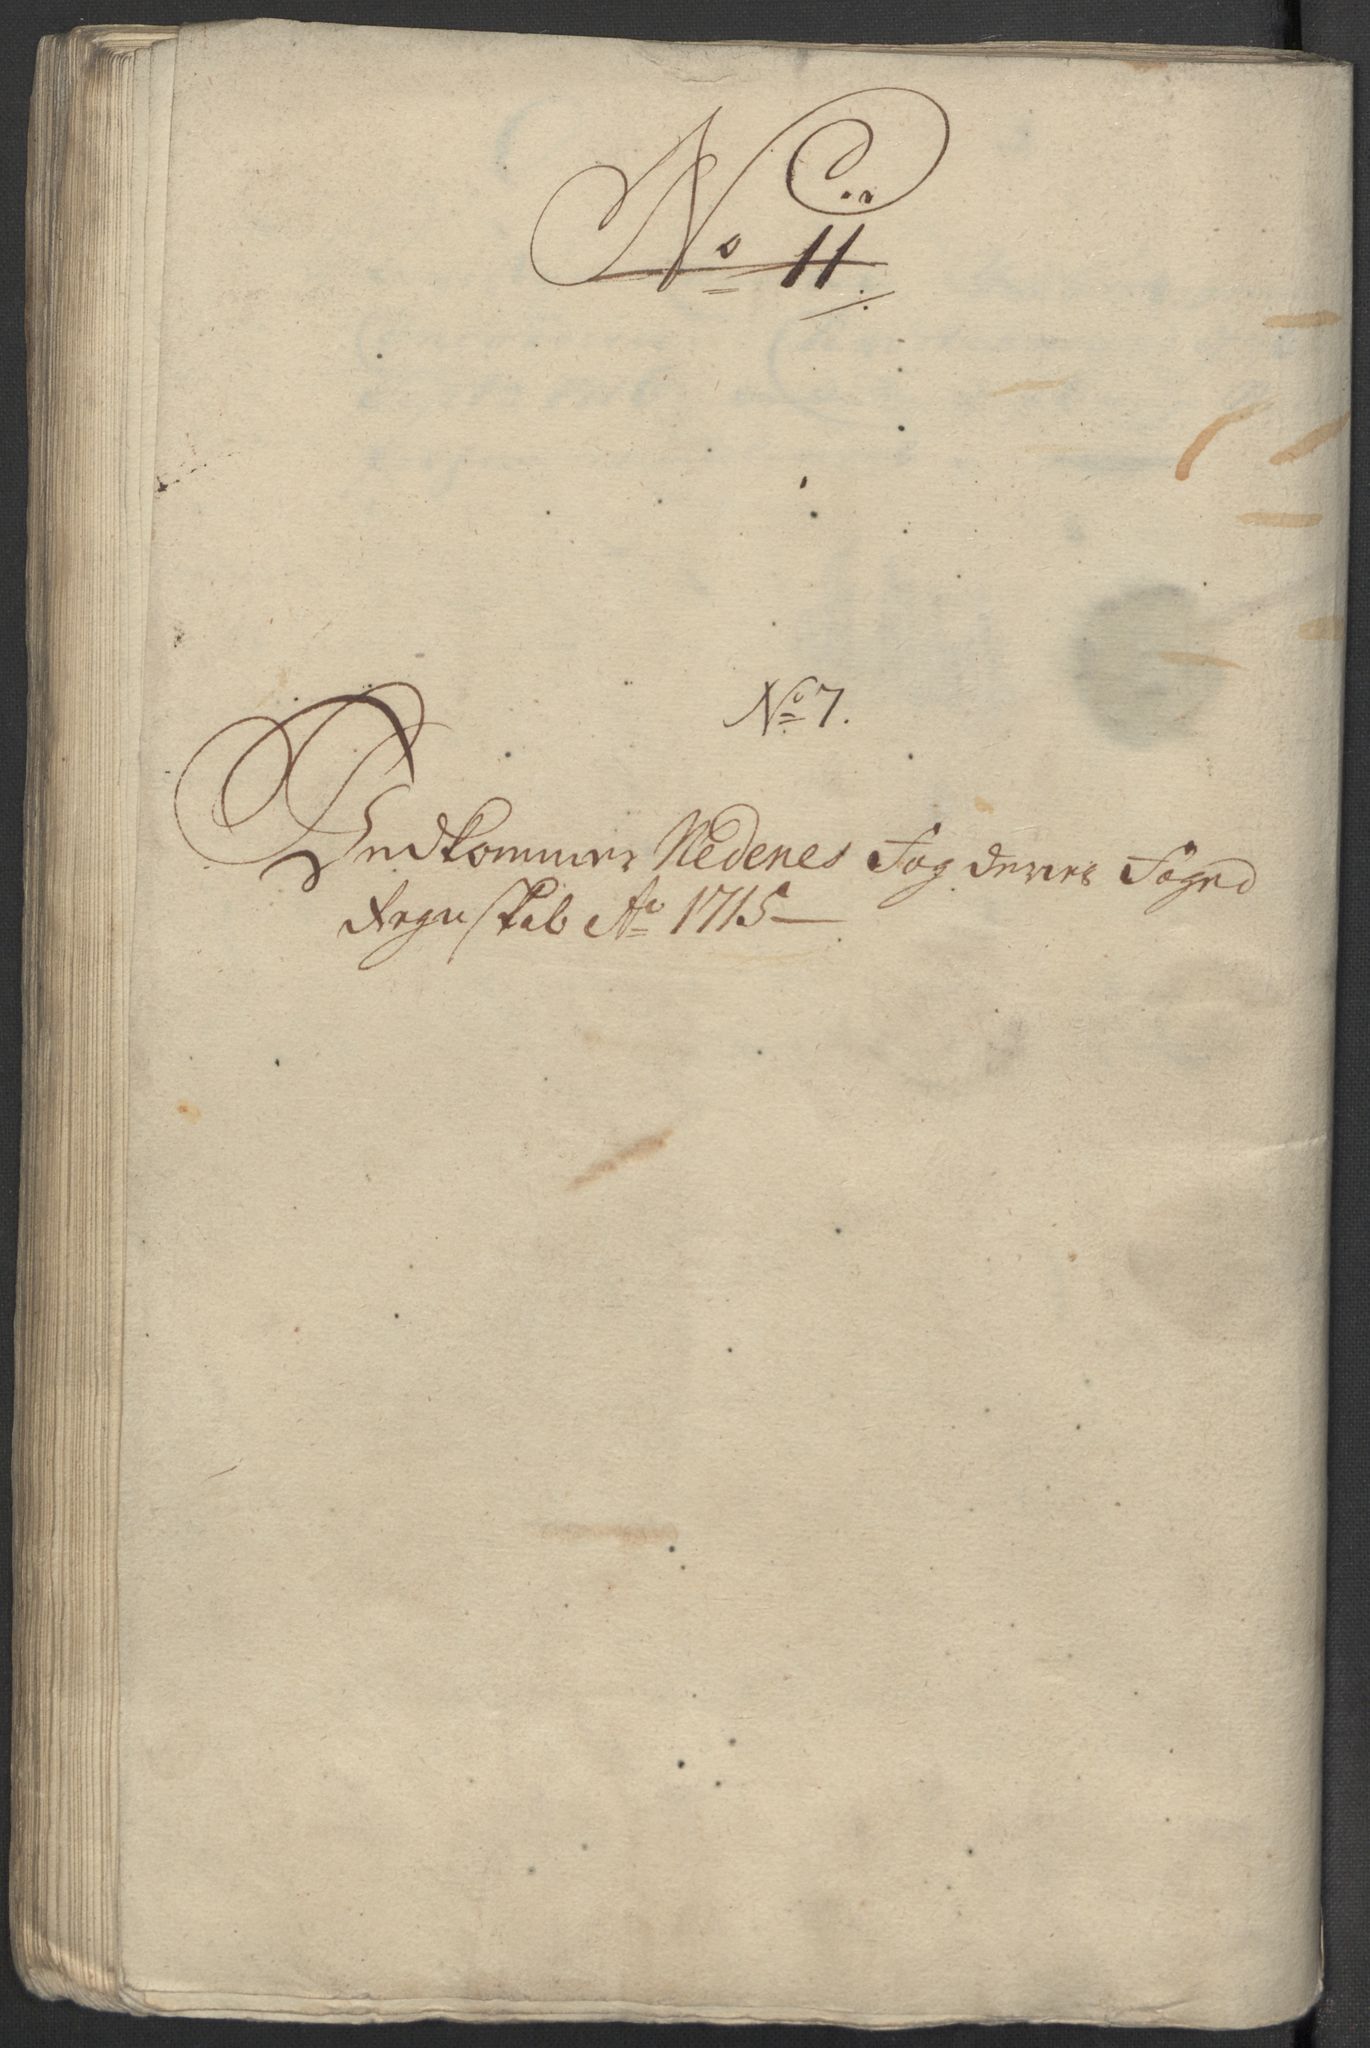 No 11
No 7.
Vedkommer Nedenes Fogderies Foged
Regnskab Ao 1715